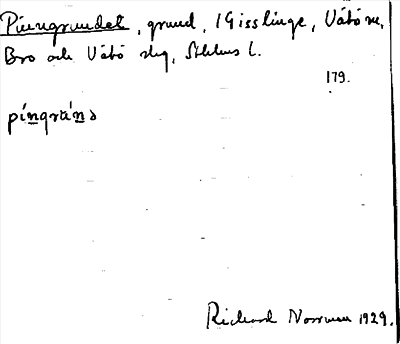 Pinngrundet, grund, 1 Gisslinge, Vätö sn,
Bro och Vätö slg, Sthlms l.
179.
pínngrún̄d
Richard Norrman 1929.